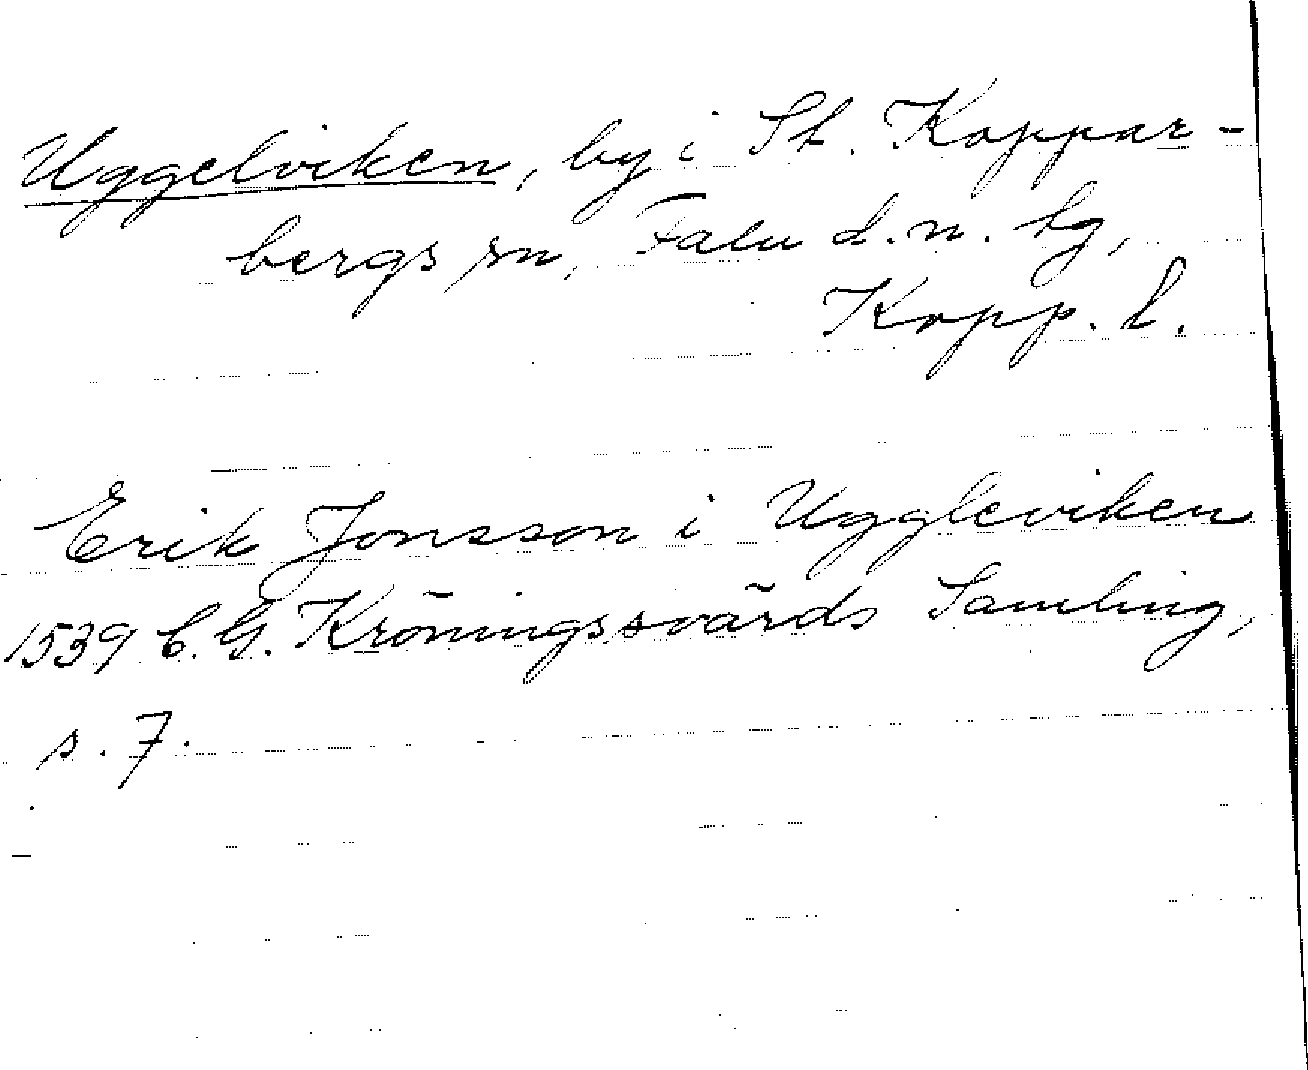 Uggelviken, by i St. Koppar-
bergs sn, Falu d.n. hg,
Kopp. l.
Erik Jonsson i Uggleviken
1539 C. G. Kröningssvärds Samling,
s. 7.